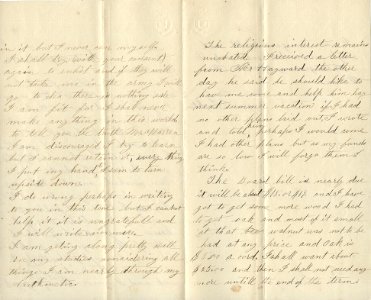 in it but I never saw my wife
I shall try with your consent
again to enlist and if they will
not take me in the army I will
go to sea there is nothing else
I am fit for I shall never
make anything in this world
to tell you the truth Mr Warren
I am discouraged I try to learn
but I cannot retain it, every thing
I put my hand to turn to turn
upside down.
I do wrong perhaps in writing
to you in this tone but I cannot
help it it is ungratefull and
I will write no more.
I am getting along pretty well
in my studies considering all
things I am nearly through my
Arithmetic
The religious interest remains
unabated I received a letter
from Hayward the other
day he said he should like to
have me come and help him hay
next summer vacation if I had
no other plans laid out I wrote
and told him perhaps I would come
I had other plans but as my funds
are so low I will forgo them I
think.
The board bill is nearly due
it will be about $15 or $17 and I have
got to get some more wood I had
to get oak and most of it small
at that walnut was not to be
had at any price and oak is
$6.00 a cord I shall want about
$25.00 and then I shall not need any
more until the end of the term